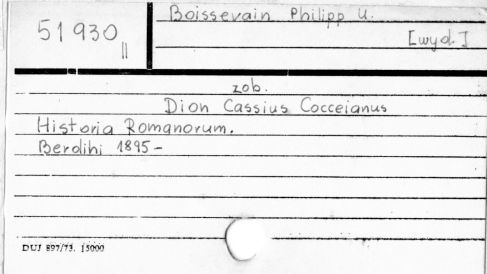 Boissevain Philipp U.
51930
II
[wyd.]
zob.
Dion Cassius Cocceianus
Historia Romanorum.
Berolini 1895-
DUJ 897/73. 15000